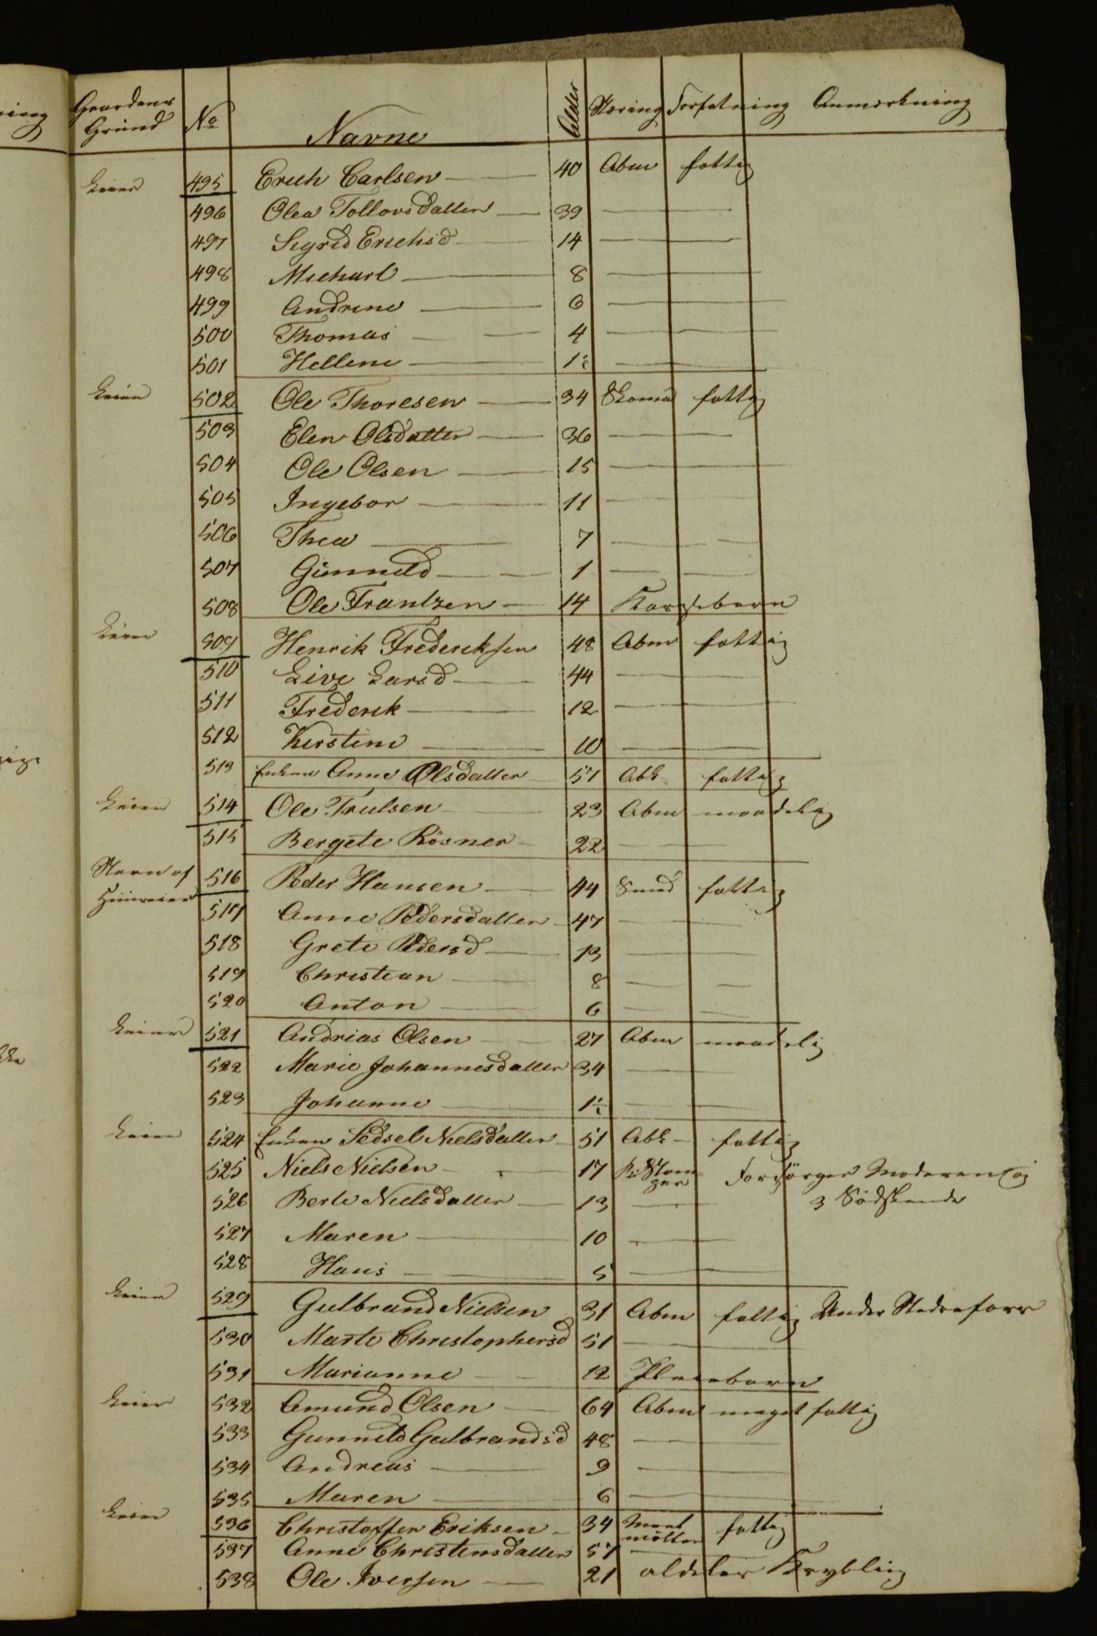 Gaardens Grund No Navne Alder Næring Forfatning Anmærkning
Leier 495 Erich Carlsen 40 Abm fattig
496 Olea Tollovsdatter 39
497 Sigrid Erichsd 14
498 Michael 8
499 Andrine 6
500 Thomas 4
501 Hellene 1½
Leier 502 Ole Thoresen 34 Skoma fattig
503 Elen Olsdatter 36
504 Ole Olsen 15
505 Ingebor 11
506 Thea 7
507 Gunneld 1
508 Ole Frantzen 14
Leier 509 Henrik Frederiksen 48 Abm fattig
510 Live Larsd 44
511 Frederik 12
512 Kirstine 10
513 Enken Anne Olsdatter 51 Abk fattig
Leier 514 Ole Trulsen 23 Abm maadelig
515 Bergete Rösner 22
516 Peder Hansen 44 Smed fattig
517 Anne Pedersdatter 47
518 Grete Pedersd 13
519 Christian 8
520 Anton 6
Leier 521 Andrias Olsen 27 Abm maadelig
522 Marie Johannesdatter 34
523 Johanne 1½
Leier 524 Enken Sedsel Nielsdatter 51 Abk fattig
525 Niels Nielsen 17 Forsörger Moderen og
526 Berte Nielsdatter 13 3 Södskende
527 Maren 10
528 Hans 5
Leier 529 Gulbrand Nielsen 31 Abm fattig Under
530 Marte Christophersd 51
531 Marianne 12 Pleiebarn
Leier 532 Amund Olsen 64 Abm meget fattig
533 Gunneld Gulbrandsd 48
534 Andreas 9
535 Maren 6
Leier 536 Christoffer Eriksen 34 fattig
537 Anne Christensdatter 57
538 Ole Iversen 21 aldeles Krybling